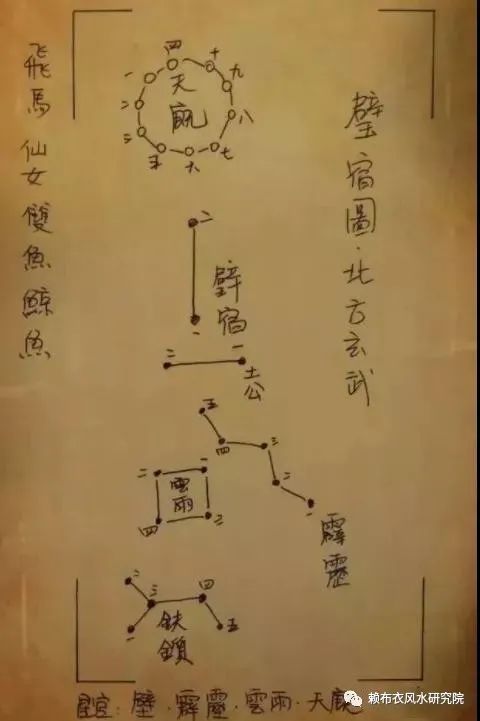 璧宿圖·北方玄武
飛馬 仙女 雙魚 鯨魚
四
十
一
九
二
八
三
五
六
七
天
二
一
壁宿
二
一
土公
五
四
三
二
一
霹靂
二
一
四
三
雲雨
二
三
四
一
五
星官：壁·霹靂·雲雨·天
赖布衣风水研究院